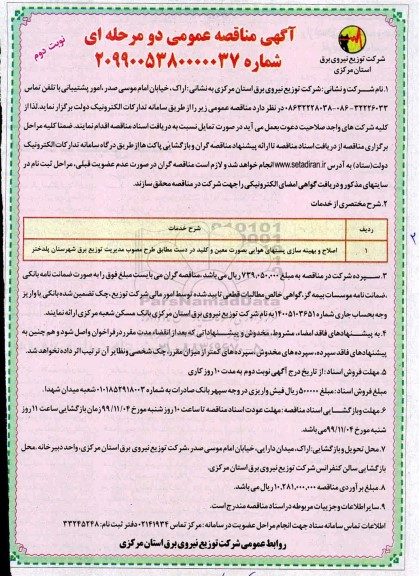 آگهی مناقصه عمومی دو مرحله ای
شماره ۲۰۹۹۰۰۵۳۸۰۰۰۰۰۳۷
نوبت دوم
شرکت توزیع نیروی برق
استان مرکزی
۱. نام شرکت و نشانی: شرکت توزیع نیروی برق استان مرکزی به نشانی: اراک، خیابان امام موسی صدر، امور پشتیبانی با تلفن تماس
۳۲۲۲۶۰۳۳-۰۸۶ -۰۸۶۳۲۲۲۸۰۳۸ در نظر دارد مناقصه عمومی زیر را از طریق سامانه تدارکات الکترونیک دولت برگزار نماید. لذا از
کلیه شرکت های واجد صلاحیت دعوت بعمل می آید در صورت تمایل نسبت به دریافت اسناد مناقصه اقدام نمایند. ضمنا کلیه مراحل
برگزاری مناقصه از دریافت اسناد مناقصه تا ارائه پیشنهاد مناقصه گران و بازگشایی پاکت ها از طریق درگاه سامانه تدارکات الکترونیک
دولت (ستاد) به آدرس www.setadiran.ir انجام خواهد شد و لازم است مناقصه گران در صورت عدم عضویت قبلی، مراحل ثبت نام در
سایتهای مذکور و دریافت گواهی امضای الکترونیکی را جهت شرکت در مناقصه محقق سازند.
۲. شرح مختصری از خدمات:
ردیف شرح خدمات
۱ اصلاح و بهینه سازی پستهای هوایی بصورت معین و کلید در دست مطابق طرح مصوب مدیریت توزیع برق شهرستان پلدختر
۳. سپرده شرکت در مناقصه به مبلغ ۷۳۹.۰۵۰.۰۰۰ ریال می باشد. مناقصه گران می بایست مبلغ فوق را به صورت ضمانت نامه بانکی
،ضمانت نامه موسسات بیمه گر، گواهی خالص مطالبات قطعی تایید شده توسط امور مالی شرکت توزیع، چک تضمین شده بانکی یا واریز
وجه بحساب جاری شماره ۱۴۰۰۵۱۰۳۶۵۱ به نام شرکت توزیع نیروی برق استان مرکزی بانک مسکن شعبه مرکزی ارائه نمایند.
۴. به پیشنهادهای فاقد امضاء، مشروط، مخدوش و پیشنهاداتی که بعد از انقضاء مدت مقرر در فراخوان واصل شود و هم چنین به
پیشنهادهای فاقد سپرده، سپرده های مخدوش، سپرده های کمتر از میزان مقرر، چک شخصی و نظایر آن ترتیب اثر داده نخواهد شد.
۵. مهلت فروش اسناد: از تاریخ درج آگهی نوبت دوم به مدت ۱۰ روز کاری
مبلغ فروش اسناد: مبلغ ۵۰۰۰۰۰ ریال فیش واریزی در وجه سپهر بانک صادرات به شماره ۰۱۰۱۸۵۲۹۱۸۰۰۳ شعبه میدان شهدا.
۶. مهلت و بازگشایی اسناد مناقصه: مهلت عودت اسناد مناقصه تا ساعت ۱۰ روز شنبه مورخ ۹۹/۱۱/۰۴ زمان بازگشایی ساعت ۱۱ روز
شنبه مورخ ۹۹/۱۱/۰۴ می باشد.
۷. محل تحویل و بازگشایی: اراک، میدان دارایی، خیابان امام موسی صدر، شرکت توزیع نیروی برق استان مرکزی، واحد دبیرخانه. محل
بازگشایی سالن کنفرانس شرکت توزیع نیروی برق استان مرکزی.
۸. مبلغ برآوردی مناقصه ۱۰,۲۸۱,۰۰۰,۰۰۰ ریال می باشد.
۹. سایر اطلاعات و جزییات مربوطه در اسناد مناقصه مندرج است.
اطلاعات تماس سامانه ستاد جهت انجام مراحل عضویت در سامانه: مرکز تماس ۰۲۱۴۱۹۳۴ دفتر ثبت نام: ۳۳۲۴۵۲۴۸
روابط عمومی شرکت توزیع نیروی برق استان مرکزی